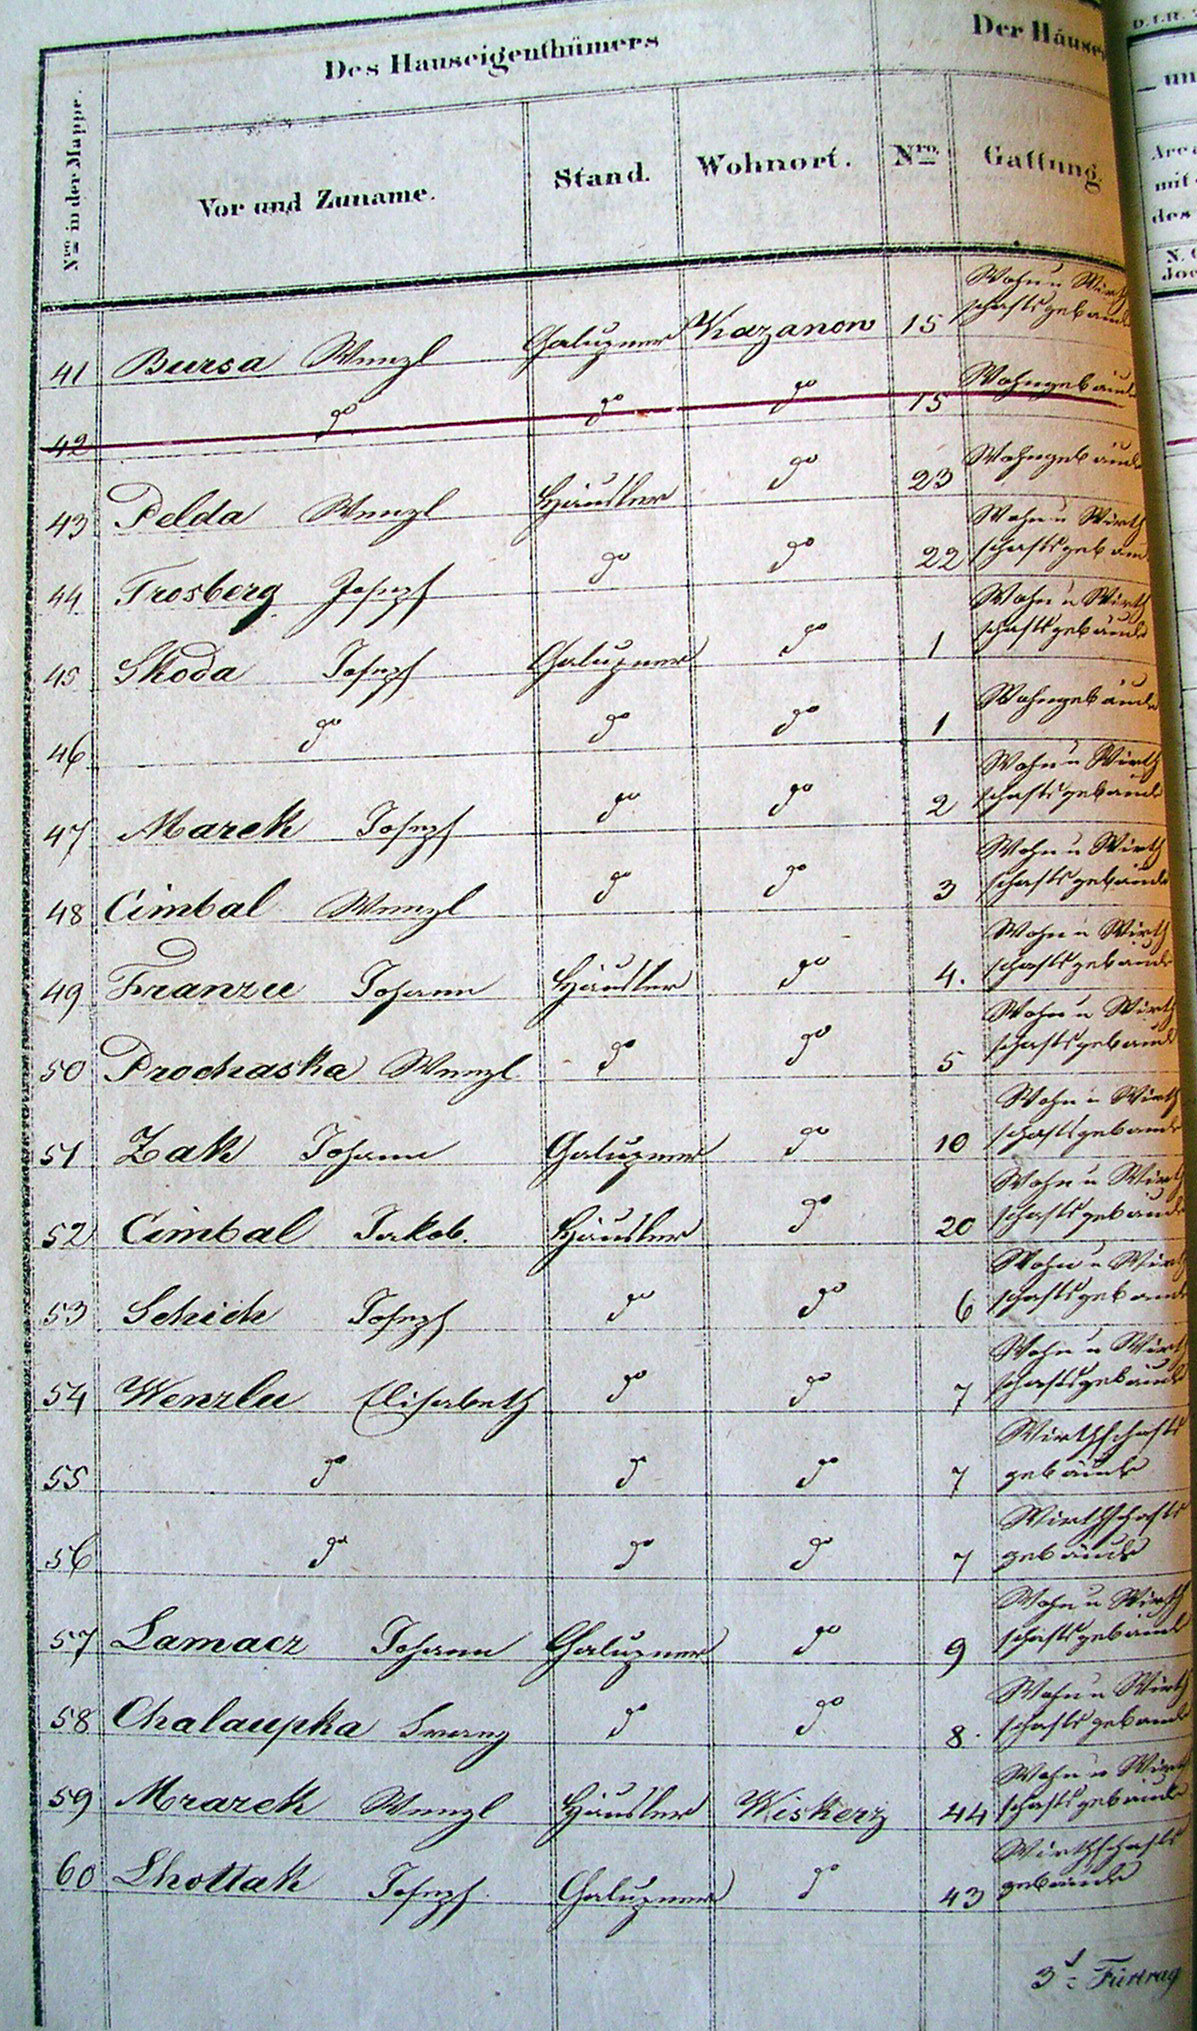 Des Hauseigenthümers Der Häuser
Nro in der Mappe. Vor und Zuname. Stand. Wohnort. Nro. Gattung.
41 Bursa Wenzl Chalupner Kazanow 15 Wohn u Wirth
schaftsgebäude
42 do do do 15 Wohngebäude
43 Pelda Wenzl Häusler do 23 Wohngebäude
44 Frosberg Josef do do 22 Wohn u Wirth
schaftsgebäude
45 Skoda Josef Chalupner do 1 Wohn u Wirth
schaftsgebäude
46 do do do 1 Wohngebäude
47 Marek Josef do do 2 Wohn u Wirth
schaftsgebäude
48 Cimbal Wenzl do do 3 Wohn u Wirth
schaftsgebäude
49 Franzu Johann Häusler do 4. Wohn u Wirth
schaftsgebäude
50 Prochaska Wenzl do do 5 Wohn u Wirth
schaftsgebäude
51 Zak Johann Chalupner do 10 Wohn u Wirth
schaftsgebäude
52 Cimbal Jakob. Häusler do 20 Wohn u Wirth
schaftsgebäude
53 Schich Josef do do 6 Wohn u Wirth
schaftsgebäude
54 Wenzlu Elisabeth do do 7 Wohn u Wirth
schaftsgebäude
55 do do do 7 Wirthschafts
gebäude
56 do do do 7 Wirthschafts
gebäude
57 Lamacz Johann Chalupner do 9 Wohn u Wirth
schaftsgebäude
58 Chalaupka Franz do do 8. Wohn u Wirth
schaftsgebäude
59 Mrazek Wenzl Häusler Wiskerz 44 Wohn u Wirth
schaftsgebäude
60 Lhottak Josef Chalupner do 43 Wirthschafts
gebäude
Fürtrag